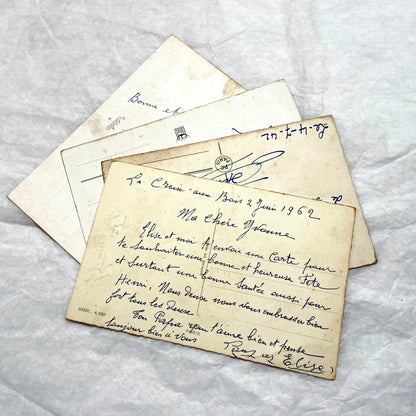 Bonne
Le-4-7-42
La Croix-aux Bois 2 Juin 1962
Ma Chère Yvonne
Elise et moi t'envoie une Carte pour
te Souhaiter une bonne et heureuse Fête
et Surtout une bonne Santée aussi pour
Henri, Nous deux nous vous embrassons bien
fort tous les deux.
Ton Papa qui t'aime bien et pense
toujour bien à vous
Elise